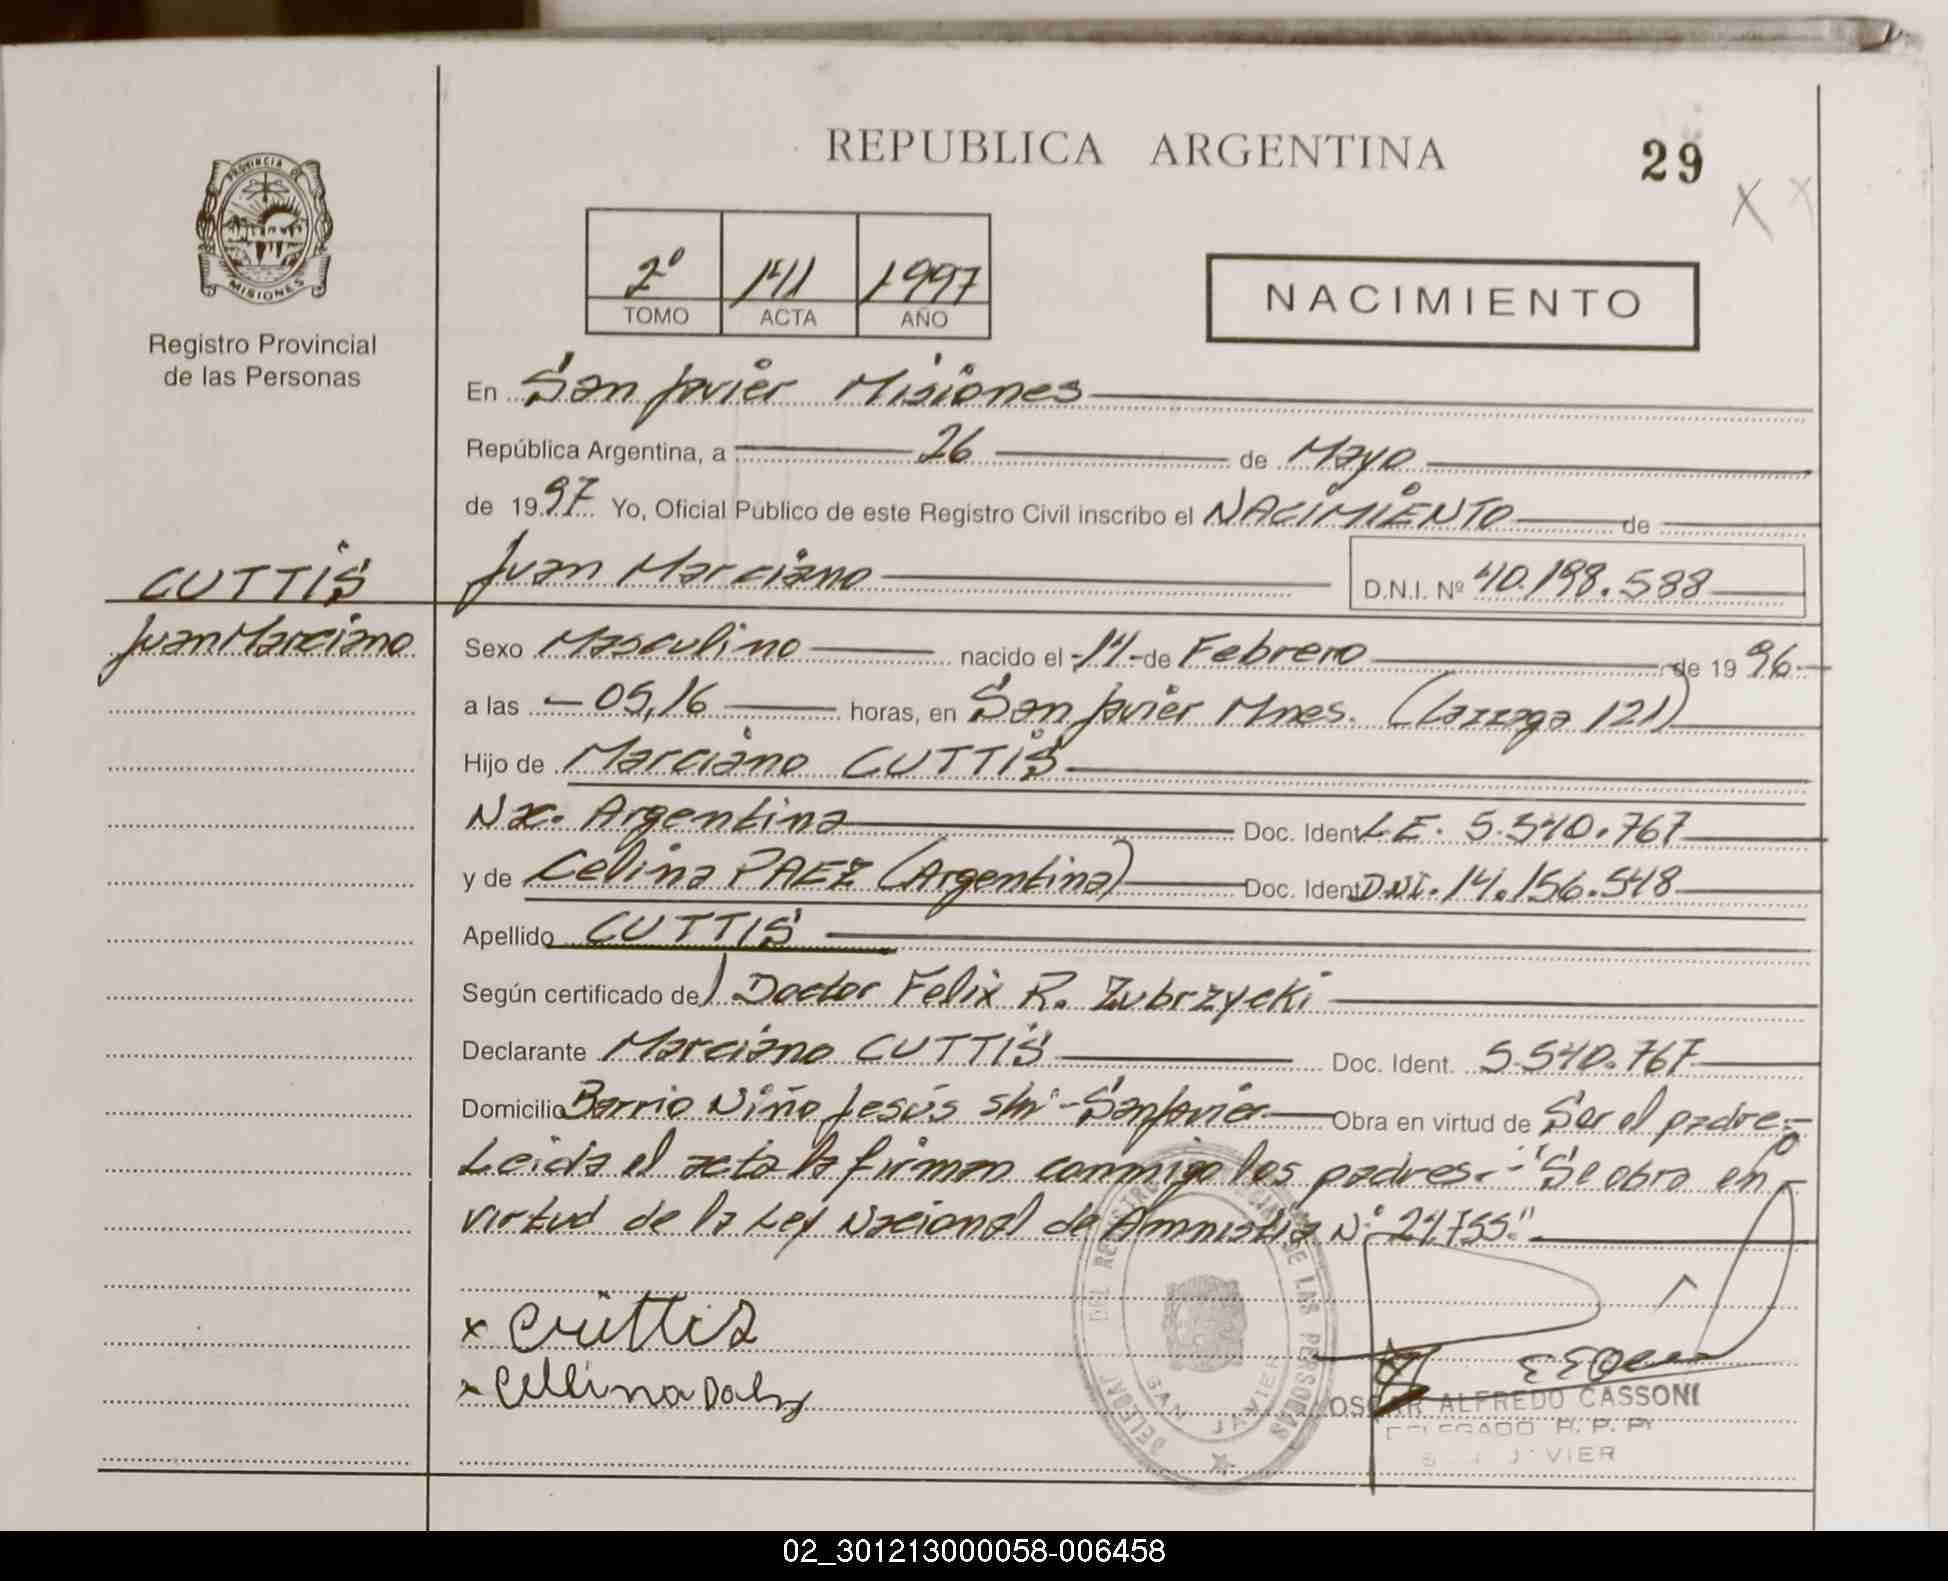 REPUBLICA ARGENTINA
29
PROVINCIA DE
MISIONES
Registro Provincial
de las Personas
2º 141 1997
TOMO ACTA AÑO
NACIMIENTO
En San Javier Misiones
República Argentina, a 26 de Mayo
de 1997 Yo, Oficial Público de este Registro Civil inscribo el NACIMIENTO de
CUTTIS
Juan Marciano
Juan Marciano D.N.I. Nº 40.198.588
Sexo Masculino nacido el -14- de Febrero de 1996
a las 05,16 horas, en San Javier Mnes. (Lazzaga 121)
Hijo de Marciano CUTTIS
Nac. Argentina Doc. Ident L.E. 5.540.767
y de Celina PAEZ (Argentina) Doc. Ident DNI. 14.156.548
Apellido CUTTIS
Según certificado de Doctor Felix R. Zubrzycki
Declarante Marciano CUTTIS Doc. Ident. 5.540.767
Domicilio Barrio Niño Jesús s/n - San Javier Obra en virtud de Ser el padre.-
Leida el acta la firman conmigo los padres.- "Se obra en
virtud de la Ley Nacional de Amnistia Nº 24.755."
x Cuttis
x Cellina
SAN JAVIER
OSCAR ALFREDO CASSONI
DELEGADO R. P. P.
02_301213000058-006458